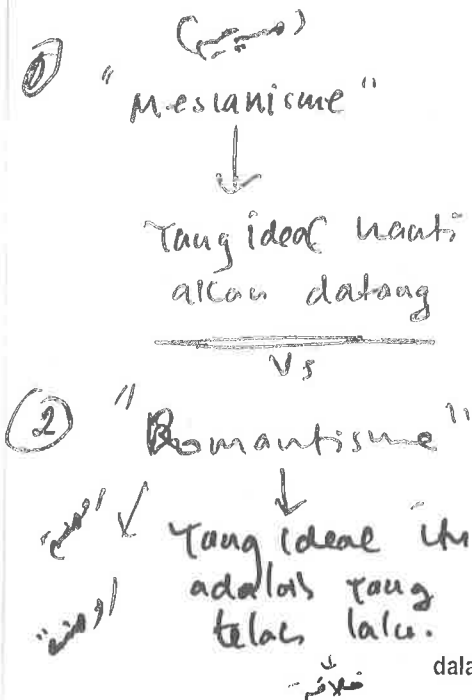 (مسيحي)
① "Mesianisme"
↓
Yang ideal nanti
akan datang
Vs
② "Romantisme"
↓
Yang ideal itu
adalah yang
telah lalu.
↓
dala